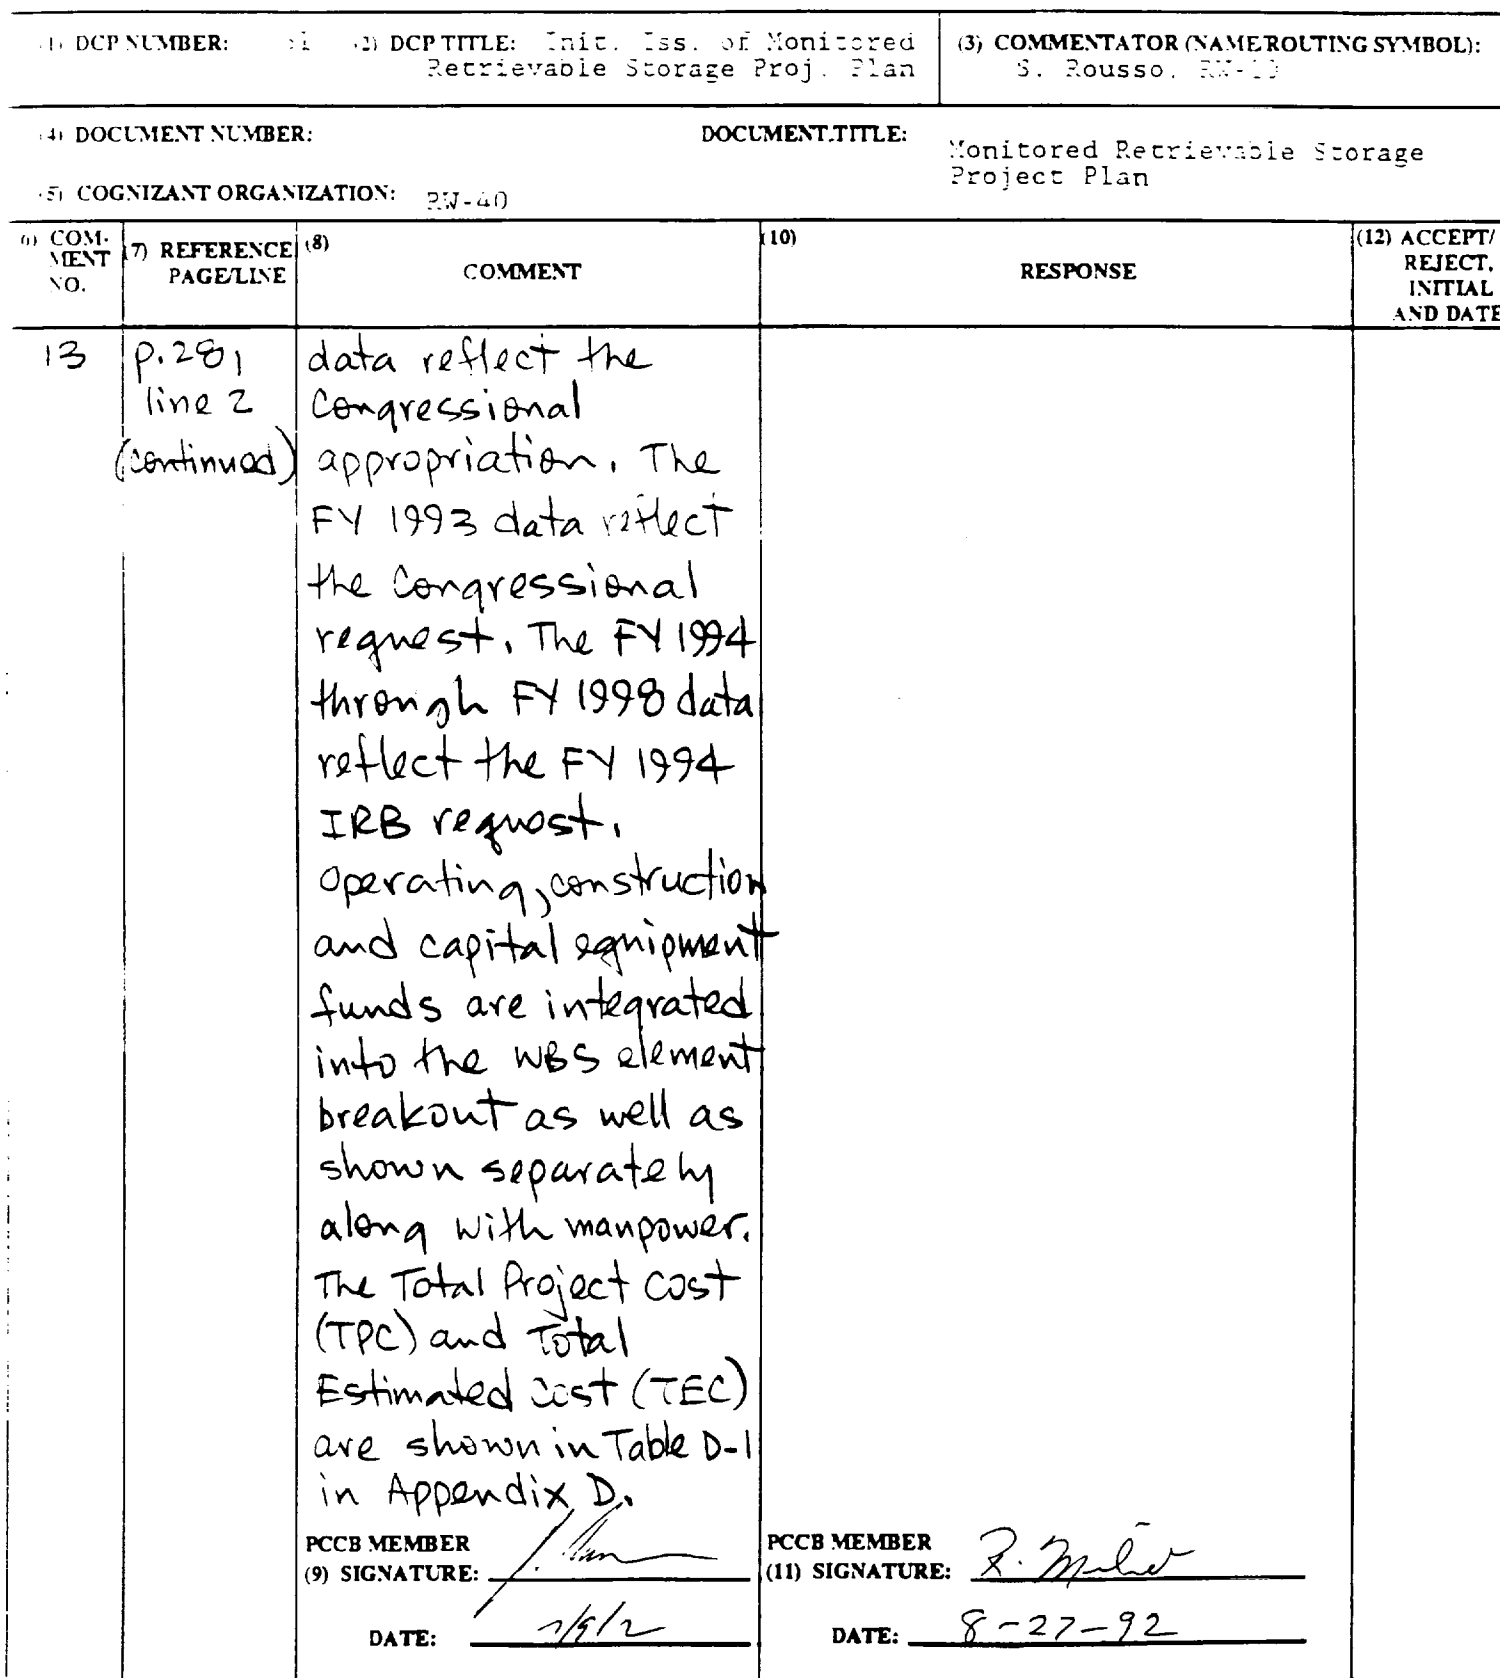 (1) DCP NUMBER: (2) DCP TITLE: Init. Iss. of Monitored
Retrievable Storage Proj. Plan
(3) COMMENTATOR (NAME/ROUTING SYMBOL):
S. Rousso,
(4) DOCUMENT NUMBER: DOCUMENT TITLE:
Monitored Retrievable Storage
Project Plan
(5) COGNIZANT ORGANIZATION: RW-40
(6) COM-
MENT
NO.
(7) REFERENCE
PAGE/LINE
(8)
COMMENT
(10)
RESPONSE
(12) ACCEPT/
REJECT,
INITIAL
AND DATE
13
p.28,
line 2
(continued)
data reflect the
Congressional
appropriation. The
FY 1993 data reflect
the Congressional
request. The FY 1994
through FY 1998 data
reflect the FY 1994
IRB request.
Operating, construction
and capital equipment
funds are integrated
into the WBS element
breakout as well as
shown separately
along with manpower.
The Total Project Cost
(TPC) and Total
Estimated Cost (TEC)
are shown in Table D-1
in Appendix D.
PCCB MEMBER
(9) SIGNATURE:
DATE:
PCCB MEMBER
(11) SIGNATURE:
DATE: 8-27-92